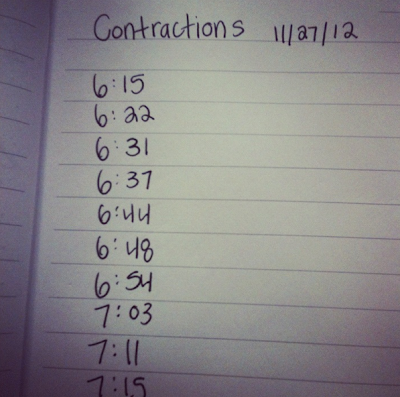 Contractions 11/27/12
6:15
6:22
6:31
6:37
6:44
6:48
6:54
7:03
7:11
7:15